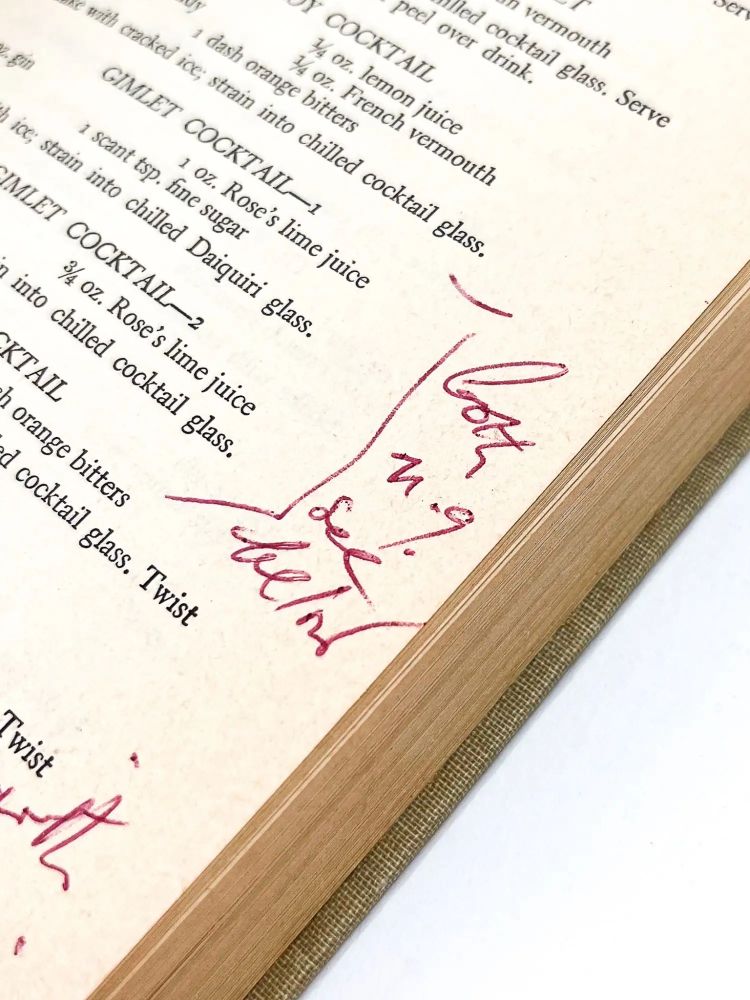 Serv
in vermouth
chilled cocktail glass. Serve
peel over drink.
DY COCKTAIL
¼ oz. lemon juice
¼ oz. French vermouth
1 dash orange bitters
ake with cracked ice; strain into chilled cocktail glass.
GIMLET COCKTAIL—1
oz. gin
1 oz. Rose's lime juice
1 scant tsp. fine sugar
th ice; strain into chilled Daiquiri glass.
GIMLET COCKTAIL—2
¾ oz. Rose's lime juice
n into chilled cocktail glass.
CKTAIL
sh orange bitters
ed cocktail glass. Twist
Twist
both
n.g.
see
below
with